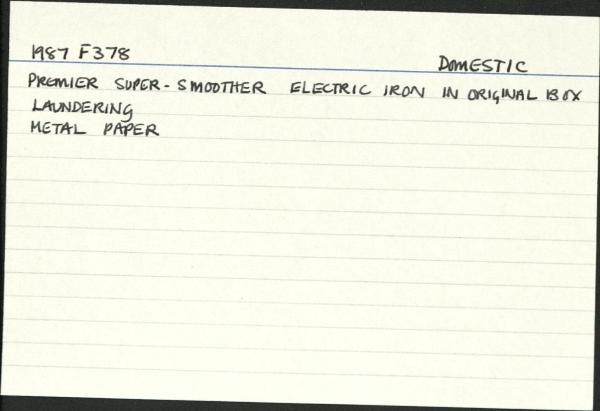 1987 F378
DOMESTIC
PREMIER SUPER-SMOOTHER ELECTRIC IRON IN ORIGINAL BOX
LAUNDERING
METAL PAPER